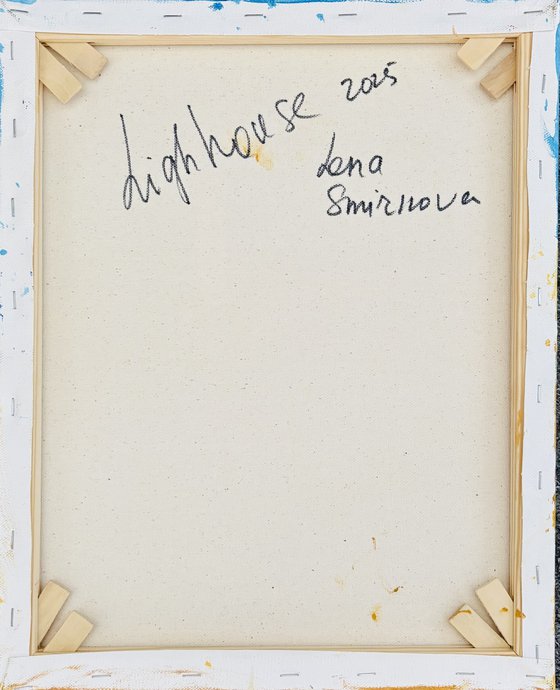 Lighouse 2025
Lena
Smirnova